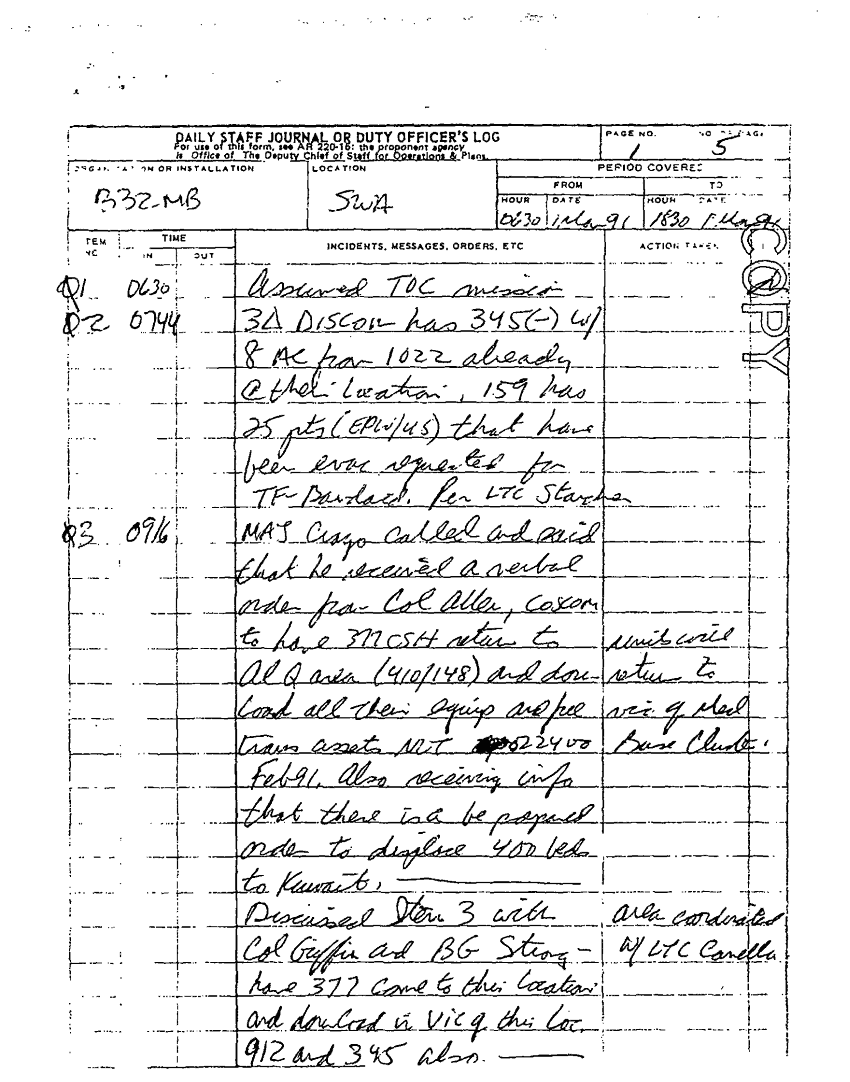 DAILY STAFF JOURNAL OR DUTY OFFICER'S LOG
For use of this form, see AR 220-15: the proponent agency
is Office of The Deputy Chief of Staff for Operations & Plans.
PAGE NO.
1
NO OF PAGES
5
ORGANIZATION OR INSTALLATION
332-MB
LOCATION
SWA
PERIOD COVERED
FROM
TO
HOUR DATE HOUR DATE
0630 1 Mar 91 1830 1 Mar 91
ITEM NO. TIME INCIDENTS, MESSAGES, ORDERS, ETC ACTION TAKEN
IN OUT
COPY
01 0630 Assumed TOC mission
02 0744 3d DISCOM has 345(-) w/
8 AC from 1022 already
@ their location, 159 has
25 pts (EPW/US) that have
been evac requested for
TF- Per LTC
03 0916 MAJ called and said
that he received a verbal
order from Col Allen, COSCOM
to have 377 CSH return to
Al Q area (410/148) and down
load all their equip and free
trans assets NLT 022400
Feb 91. Also receiving info
that there is a be prepared
order to displace 400 beds
to Kuwait.
units will
return to
vic of Med
Base Cluster.
Discussed Item 3 with
Col Griffin and BG Strong -
have 377 come to this location
and download in vic of this loc.
912 and 345 also.
area coordinated
w/ LTC Canella